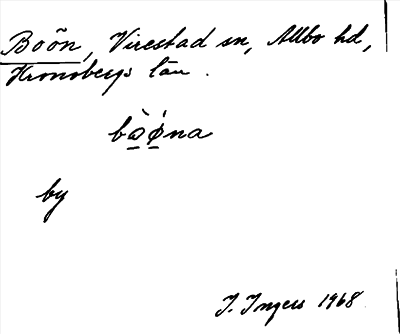 Boön, Virestad sn, Allbo hd,
Kronobergs län.
bὼ̲ǿ̲na
by
I. Ingers 1968